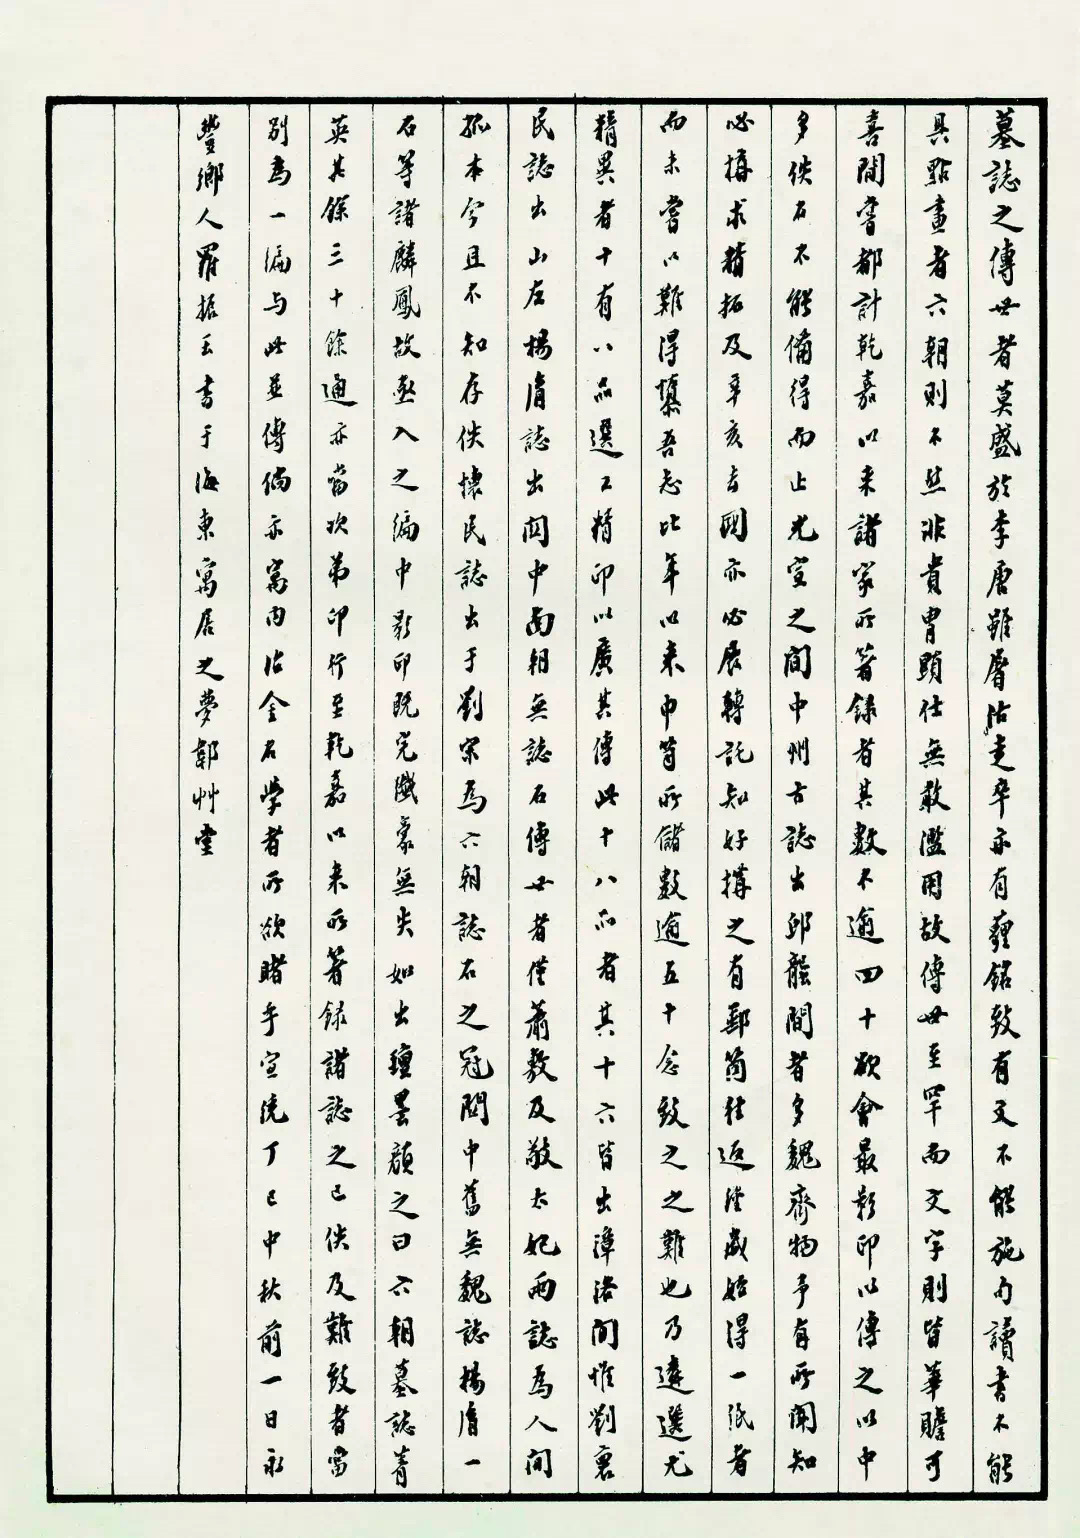 墓誌之傳世者莫盛於李唐雖屠沽走卒亦有薶銘致有文不能施句讀書不能
具點畫者六朝則不然非貴胄顯仕無敢濫用故傳世至罕而文字則皆華贍可
喜間嘗都計乾嘉以來諸家所箸錄者其數不逾四十欲會最影印以傳之以中
多佚石不能備得而止光宣之間中州古誌出邱隴間者多魏齊物予有所聞知
必搆求精拓及辛亥去國亦必展轉託知好搆之有郵筒往返經歲始得一紙者
而未嘗以難得懈吾志比年以來巾笥所儲數逾五十念致之之難也乃遴選尤
精異者十有八品選工精印以廣其傳此十八品者其十六皆出漳洛間惟劉懷
民誌出山左楊胤誌出關中南朝無誌石傳世者僅蕭敷及敬太妃兩誌為人間
孤本今且不知存佚懷民誌出于劉宋為六朝誌石之冠關中舊無魏誌楊胤一
石等諸麟鳳故亟入之編中影印既完纖豪無失如出氈墨顏之曰六朝墓誌菁
英其餘三十餘通亦當次弟印行至乾嘉以來所箸錄諸誌之已佚及難致者當
別為一編与此並傳倘亦寓內治金石學者所欲睹乎宣統丁巳中秋前一日永
豐鄉人羅振玉書于海東寓居之夢郼艸堂